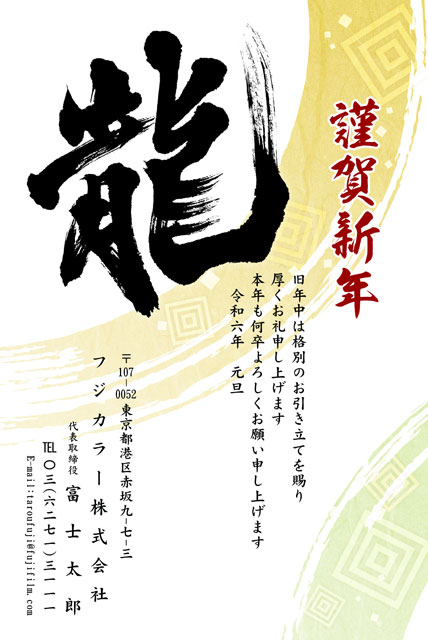 龍
謹賀新年
旧年中は格別のお引き立てを賜り
厚くお礼申し上げます
本年も何卒よろしくお願い申し上げます
令和六年 元旦
〒107-0052 東京都港区赤坂九-七-三
フジカラー株式会社
代表取締役 富士太郎
TEL〇三(六二七一)三一一一
E-mail:taroufuji@fujifilm.com